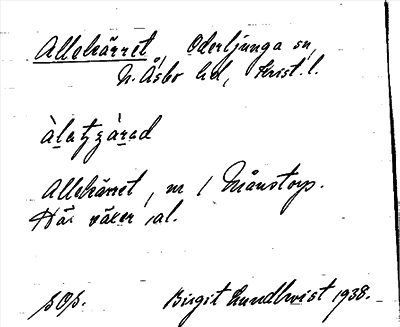 Allekärret, Oderljunga sn,
N. Åsbo hd, Krist. l.
àlatʒàrad
Allekärret, nr 1 Månstorp.
Här växer al.
sOp. Birgit Lundkvist 1938.